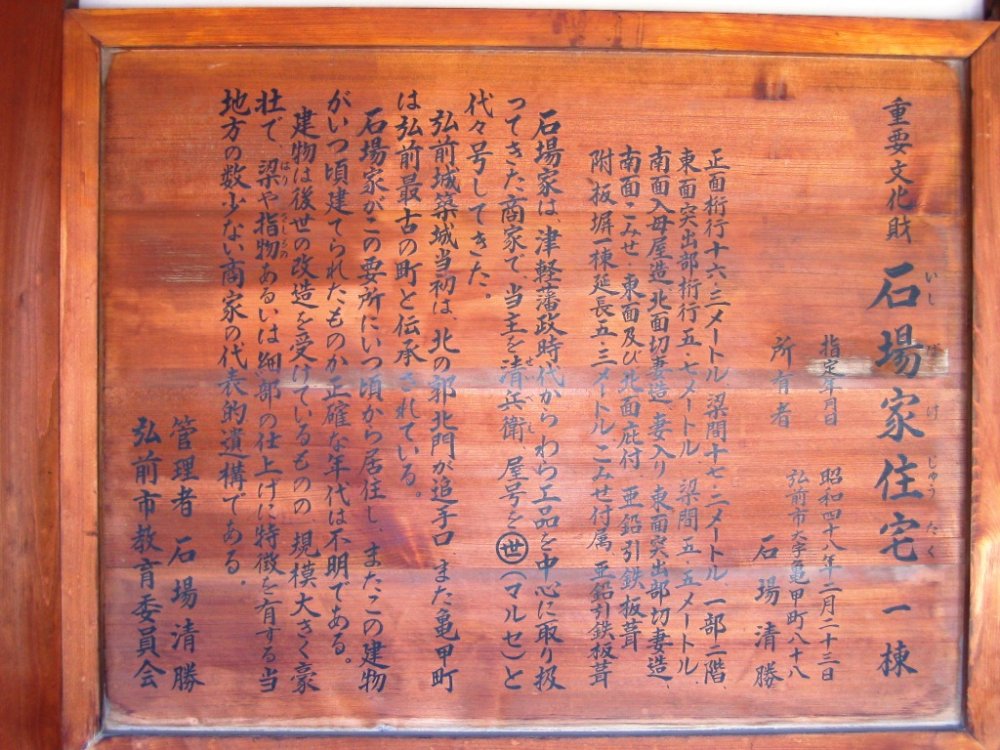 重要文化財 石場家住宅 一棟
いしばけじゅうたく
指定年月日 昭和四十八年二月二十三日
所有者 弘前市大字亀甲町八十八
石場清勝
正面桁行十六・三メートル 梁間十七・二メートル 一部二階、
東面突出部桁行五・七メートル 梁間五・五メートル
南面入母屋造 北面切妻造 妻入り 東面突出部切妻造、
南面こみせ 東面及び北面庇付 亜鉛引鉄板葺
附板塀一棟延長五・三メートル こみせ付属 亜鉛引鉄板葺
石場家は、津軽藩政時代からわら工品を中心に取り扱
ってきた商家で、当主を清兵衛、屋号を㊥(マルセ)と
代々号してきた。
弘前城築城当初は、北の郭北門が追手口、また亀甲町
は弘前最古の町と伝承されている。
石場家がこの要所にいつ頃から居住し、またこの建物
がいつ頃建てられたものか正確な年代は不明である。
建物は後世の改造を受けているものの、規模大きく豪
壮で、梁や指物あるいは細部の仕上げに特徴を有する当
地方の数少ない商家の代表的遺構である。
管理者 石場清勝
弘前市教育委員会